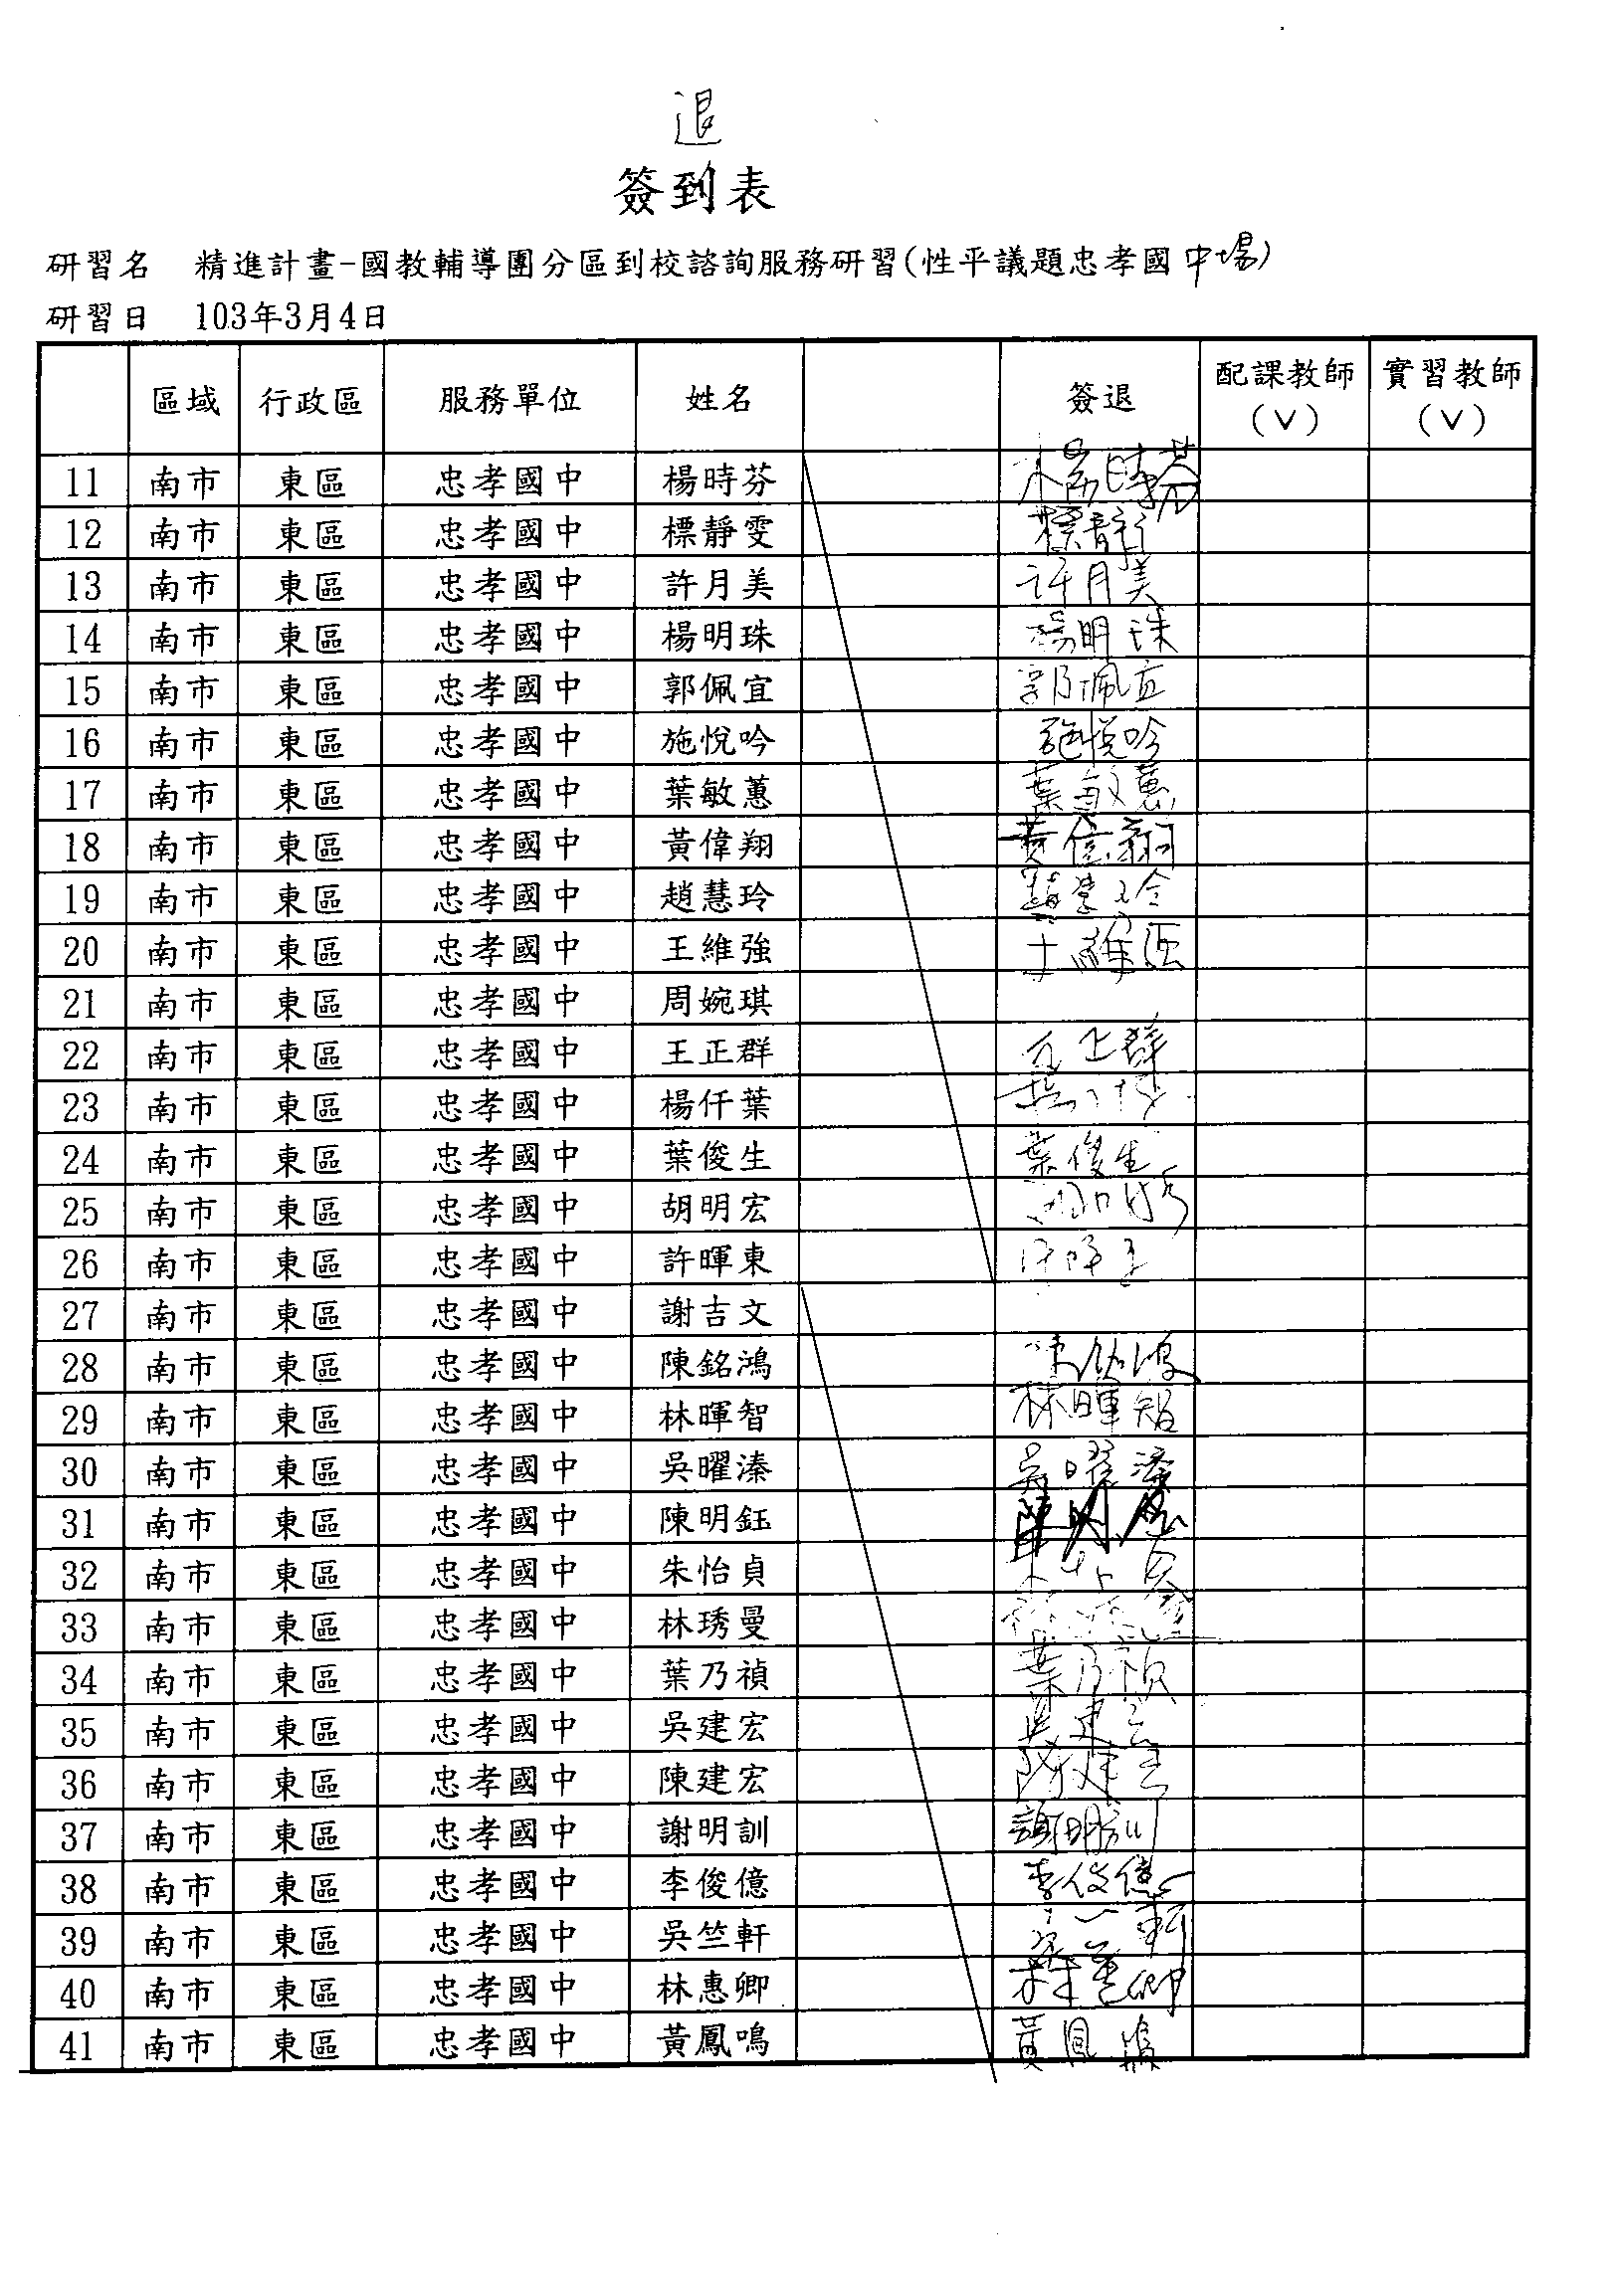 退
簽到表
研習名 精進計畫-國教輔導團分區到校諮詢服務研習(性平議題忠孝國中場)
研習日 103年3月4日
區域 行政區 服務單位 姓名 簽退 配課教師(V) 實習教師(V)
11 南市 東區 忠孝國中 楊時芬 楊時芬
12 南市 東區 忠孝國中 標靜雯 標靜
13 南市 東區 忠孝國中 許月美 許月美
14 南市 東區 忠孝國中 楊明珠 楊明珠
15 南市 東區 忠孝國中 郭佩宜 郭佩宜
16 南市 東區 忠孝國中 施悅吟 施悅吟
17 南市 東區 忠孝國中 葉敏蕙 葉敏蕙
18 南市 東區 忠孝國中 黃偉翔 黃偉翔
19 南市 東區 忠孝國中 趙慧玲 趙慧玲
20 南市 東區 忠孝國中 王維強 王維強
21 南市 東區 忠孝國中 周婉琪
22 南市 東區 忠孝國中 王正群 王正群
23 南市 東區 忠孝國中 楊仟葉
24 南市 東區 忠孝國中 葉俊生 葉俊生
25 南市 東區 忠孝國中 胡明宏
26 南市 東區 忠孝國中 許暉東
27 南市 東區 忠孝國中 謝吉文
28 南市 東區 忠孝國中 陳銘鴻 陳銘鴻
29 南市 東區 忠孝國中 林暉智 林暉智
30 南市 東區 忠孝國中 吳曜溱 吳曜溱
31 南市 東區 忠孝國中 陳明鈺 陳明鈺
32 南市 東區 忠孝國中 朱怡貞
33 南市 東區 忠孝國中 林琇曼
34 南市 東區 忠孝國中 葉乃禎 葉乃禎
35 南市 東區 忠孝國中 吳建宏 吳建宏
36 南市 東區 忠孝國中 陳建宏 陳建宏
37 南市 東區 忠孝國中 謝明訓 謝明訓
38 南市 東區 忠孝國中 李俊億 李俊億
39 南市 東區 忠孝國中 吳竺軒
40 南市 東區 忠孝國中 林惠卿 林惠卿
41 南市 東區 忠孝國中 黃鳳鳴 黃鳳鳴